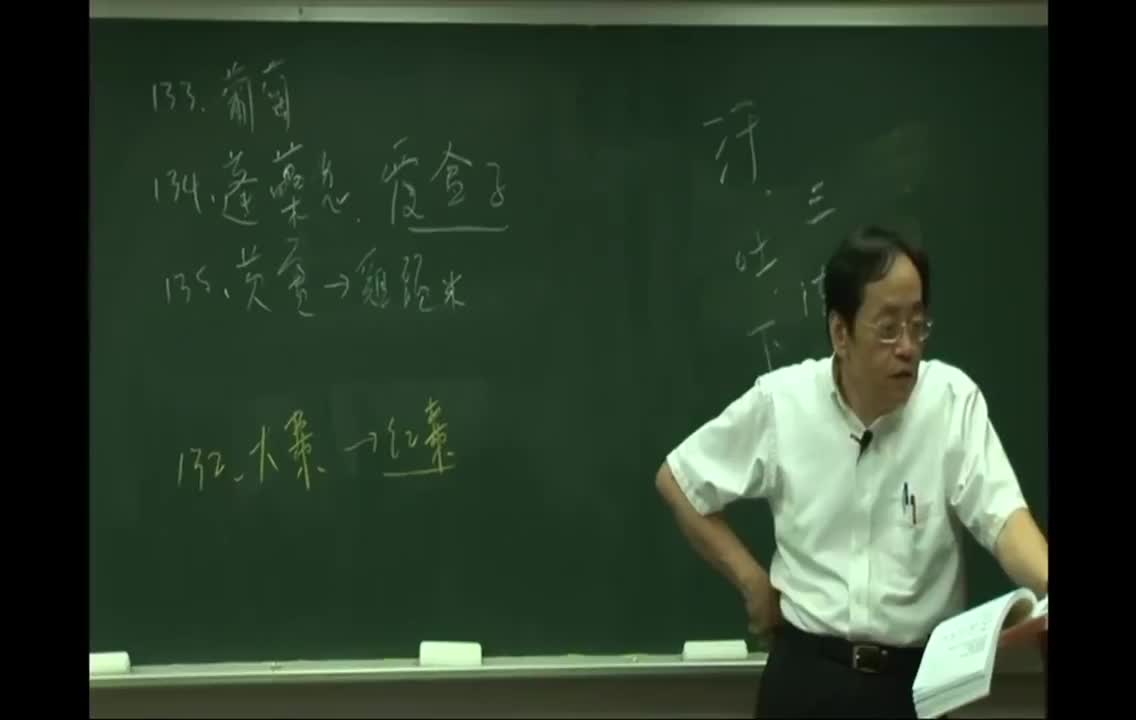 133. 葡萄
134. 蓬虆 覆盆子
135. 芡實→雞頭米
132. 大棗→紅棗
汗.
吐.
下
三
法